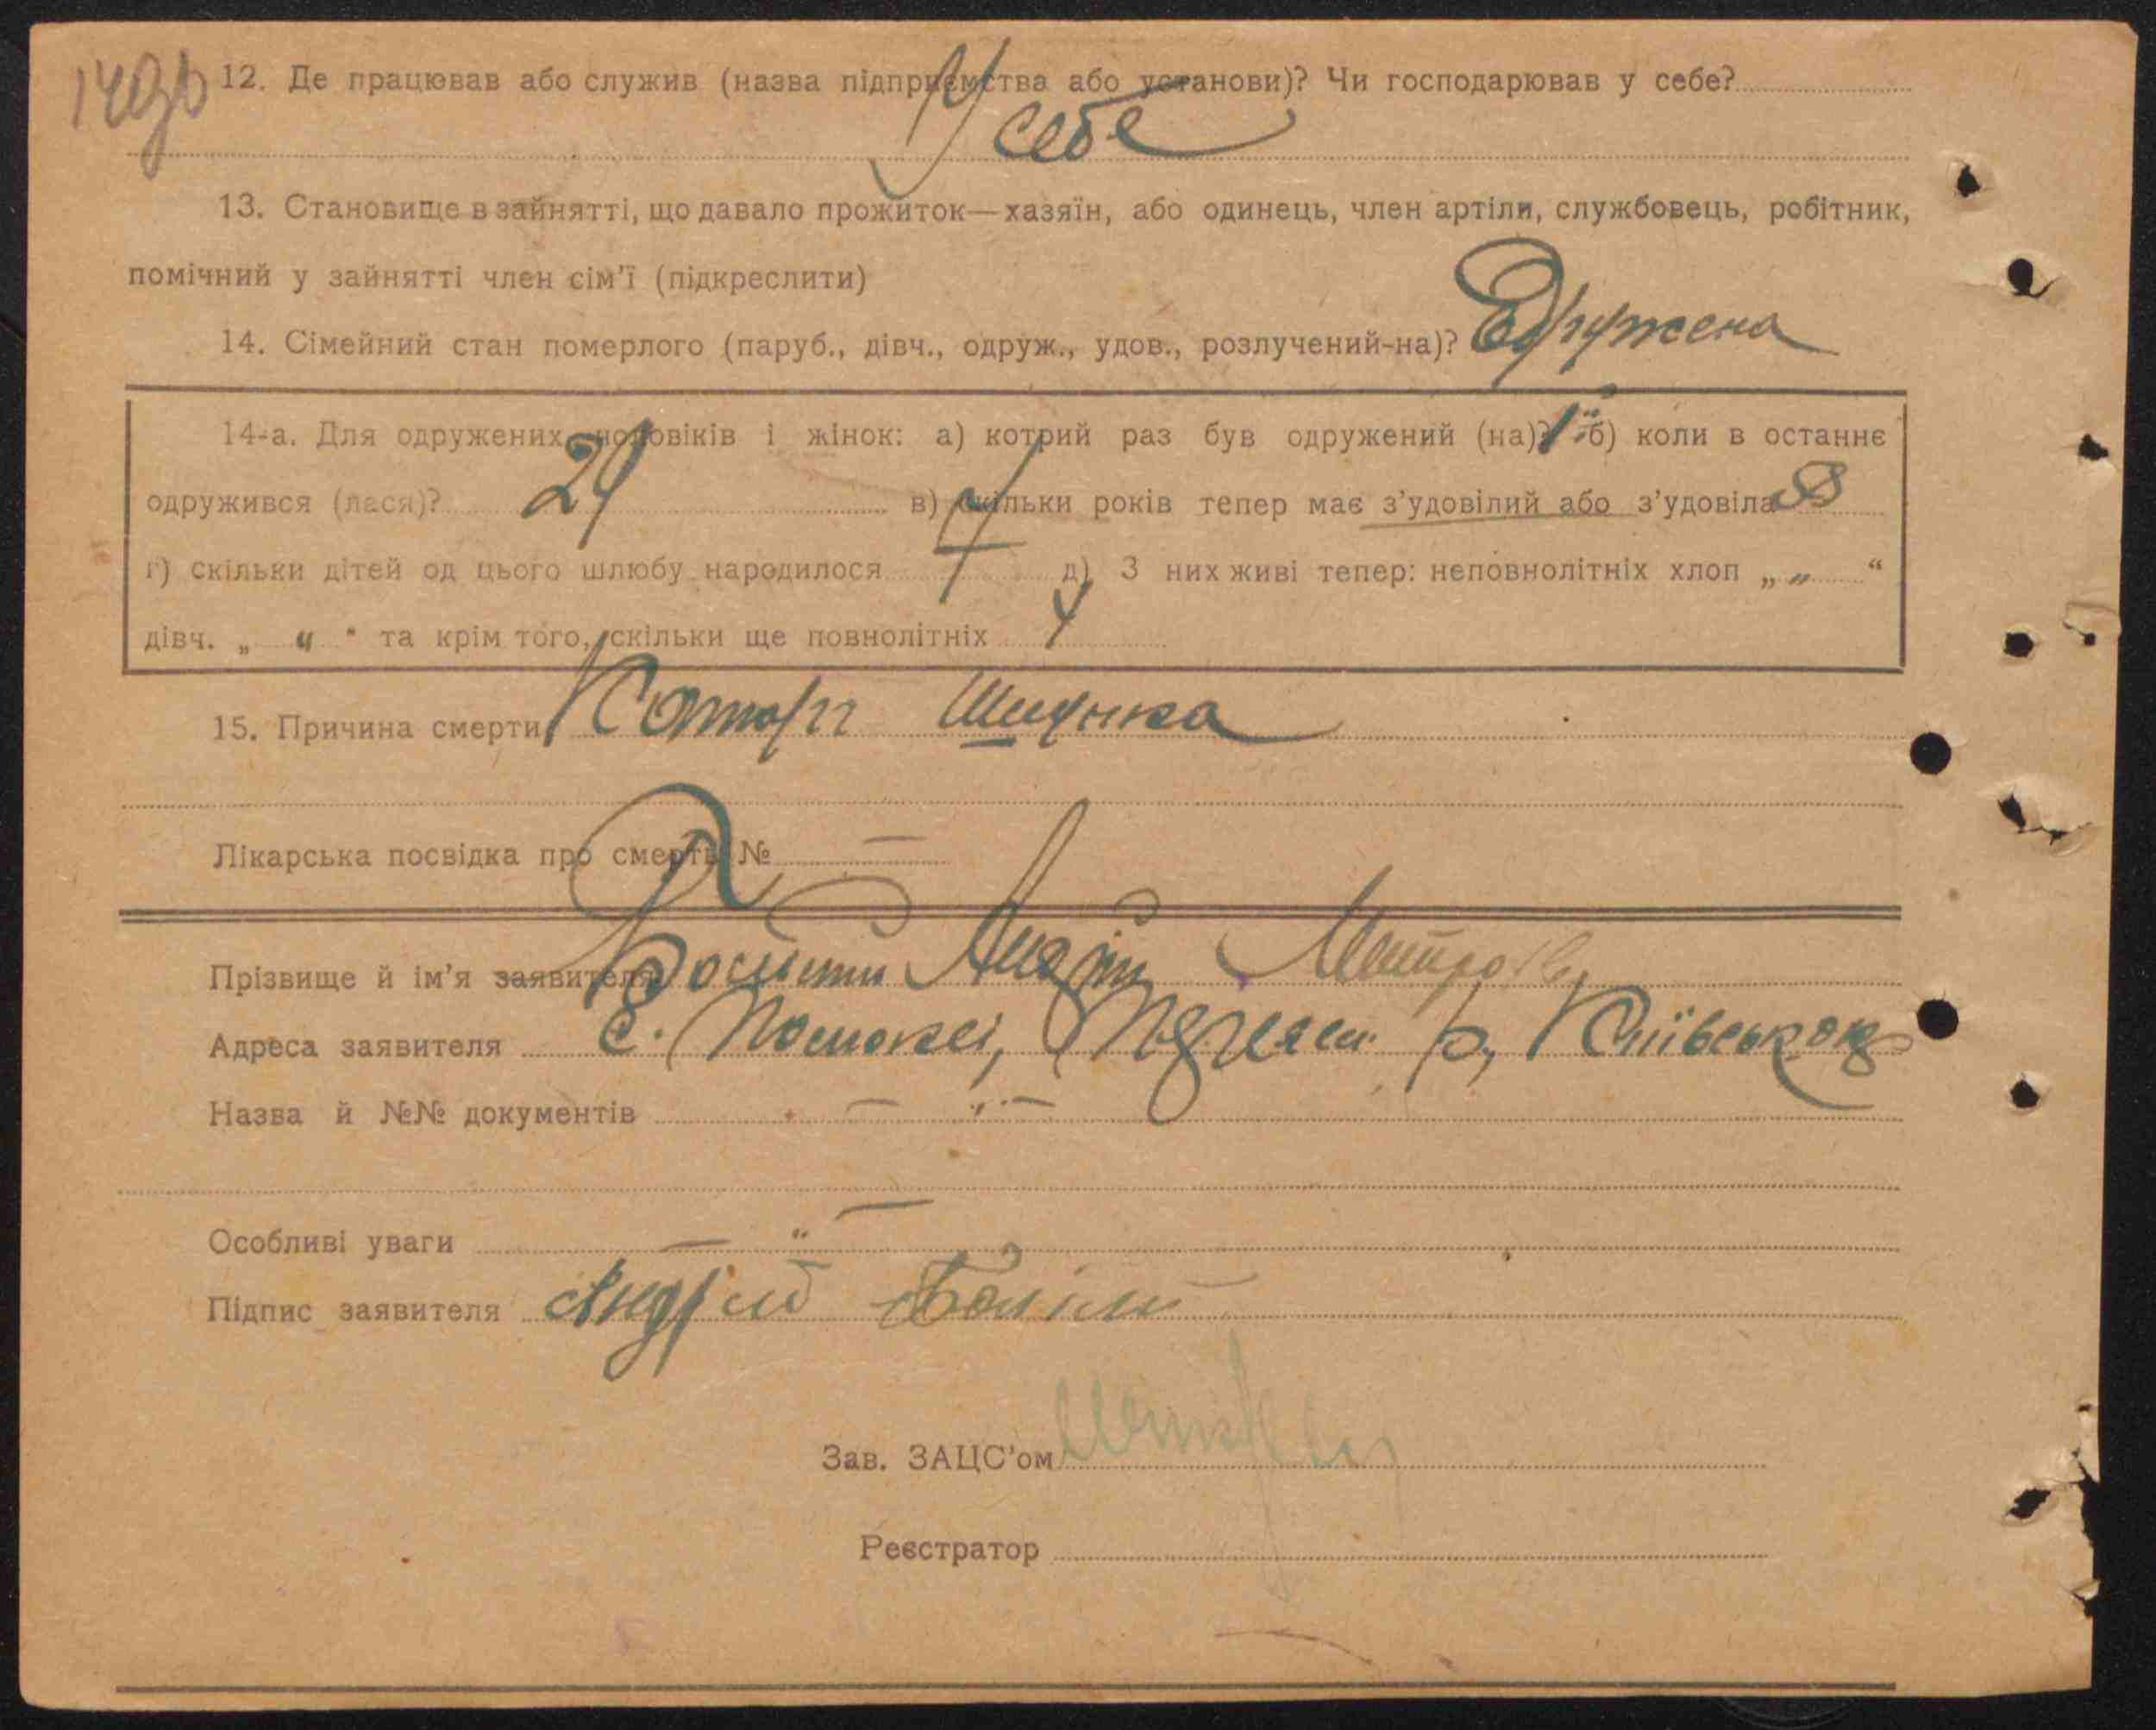 149 зв
12. Де працював або служив (назва підприємства або установи)? Чи господарював у себе?
У себе
13. Становище в зайнятті, що давало прожиток—хазяїн, або одинець, член артіли, службовець, робітник,
помічний у зайнятті член сім'ї (підкреслити)
14. Сімейний стан померлого (паруб., дівч., одруж., удов., розлучений-на)? Одружена
14-а. Для одружених чоловіків і жінок: а) котрий раз був одружений (на)? 1 б) коли в останнє
одружився (лася)? 29 в) скільки років тепер має з'удовілий або з'удовіла
г) скільки дітей од цього шлюбу народилося 7 д) З них живі тепер: неповнолітніх хлоп „ „ “
дівч. „ „ “ та крім того, скільки ще повнолітніх 4
15. Причина смерти Катар Шлунка
Лікарська посвідка про смерть № —
Прізвище й ім'я заявителя Андрій
Адреса заявителя С. р, Київської
Назва й №№ документів — „ —
Особливі уваги — „ —
Підпис заявителя Андрій
Зав. ЗАЦС'ом
Реєстратор